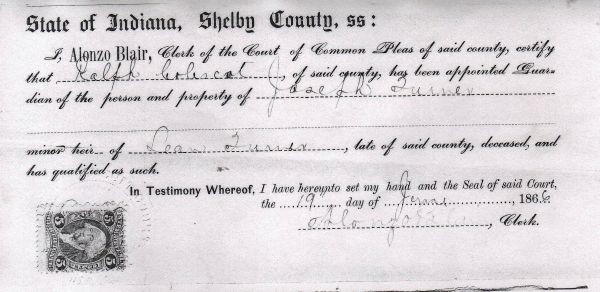 State of Indiana, Shelby County, ss:
I, Alonzo Blair, Clerk of the Court of Common Pleas of said county, certify
that Ralph Colescot, of said county, has been appointed Guar-
dian of the person and property of Joseph Turner
minor heir of Turner, late of said county, deceased, and
has qualified as such.
In Testimony Whereof, I have hereunto set my hand and the Seal of said Court,
the 19" day of June, 1866
Alonzo Blair, Clerk.
5 5
5 5